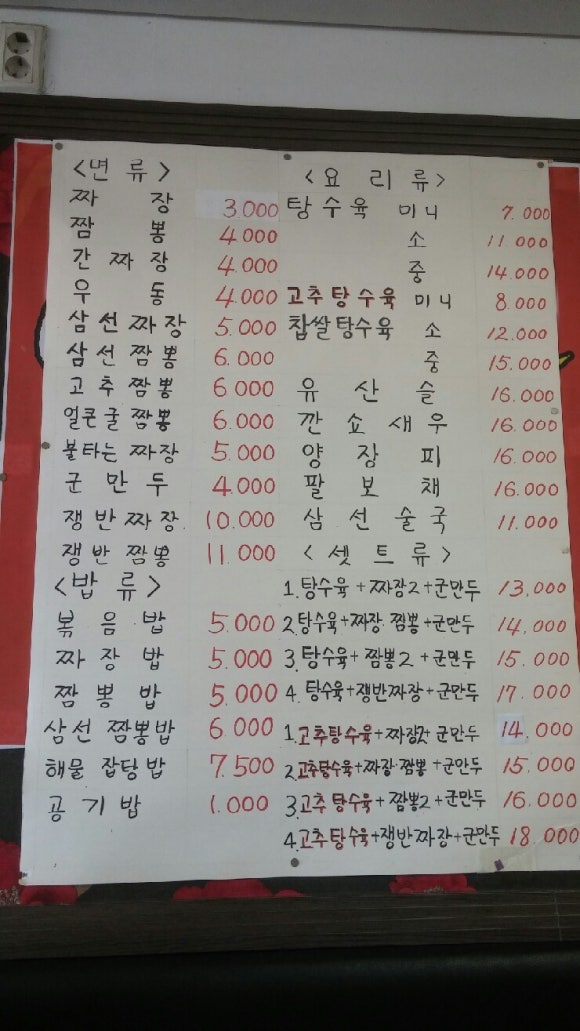 <면 류>
짜 장 3.000
짬 뽕 4.000
간 짜 장 4.000
우 동 4.000
삼선짜장 5.000
삼선짬뽕 6.000
고추짬뽕 6.000
얼큰굴짬뽕 6.000
불타는짜장 5.000
군 만 두 4.000
쟁반짜장. 10.000
쟁반짬뽕 11.000
<밥 류>
볶 음 밥 5.000
짜 장 밥 5.000
짬 뽕 밥 5.000
삼선 짬뽕밥 6.000
해물 잡탕밥 7.500
공 기 밥 1.000
<요 리 류>
탕수육 미니 7.000
소 11.000
중 14.000
고추탕수육 미니 8.000
찹쌀탕수육 소 12.000
중 15.000
유 산 슬 16.000
깐 쇼 새 우 16.000
양 장 피 16.000
팔 보 채 16.000
삼 선 술 국 11.000
<셋 트 류>
1.탕수육+짜장2+군만두 13,000
2.탕수육+짜장·짬뽕+군만두 14,000
3.탕수육+짬뽕2+군만두 15.000
4.탕수육+쟁반짜장+군만두 17.000
1.고추탕수육+짜장2+군만두 14,000
2.고추탕수육+짜장·짬뽕+군만두 15.000
3.고추탕수육+짬뽕2+군만두 16.000
4.고추탕수육+쟁반짜장+군만두 18.000